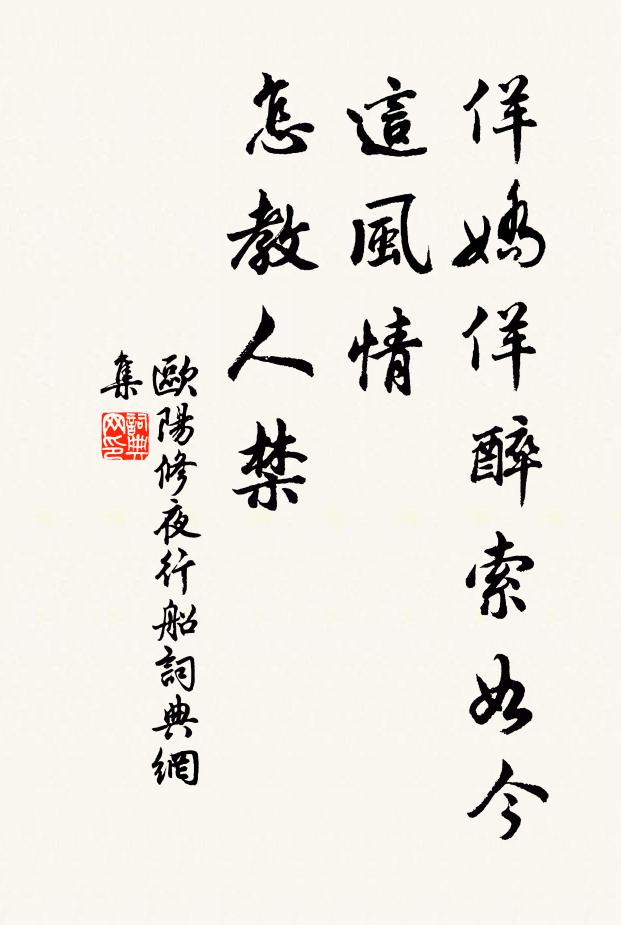 佯嬌佯醉索如今
這風情
怎教人禁
歐陽修夜行船詞典網
集
詞典
网印